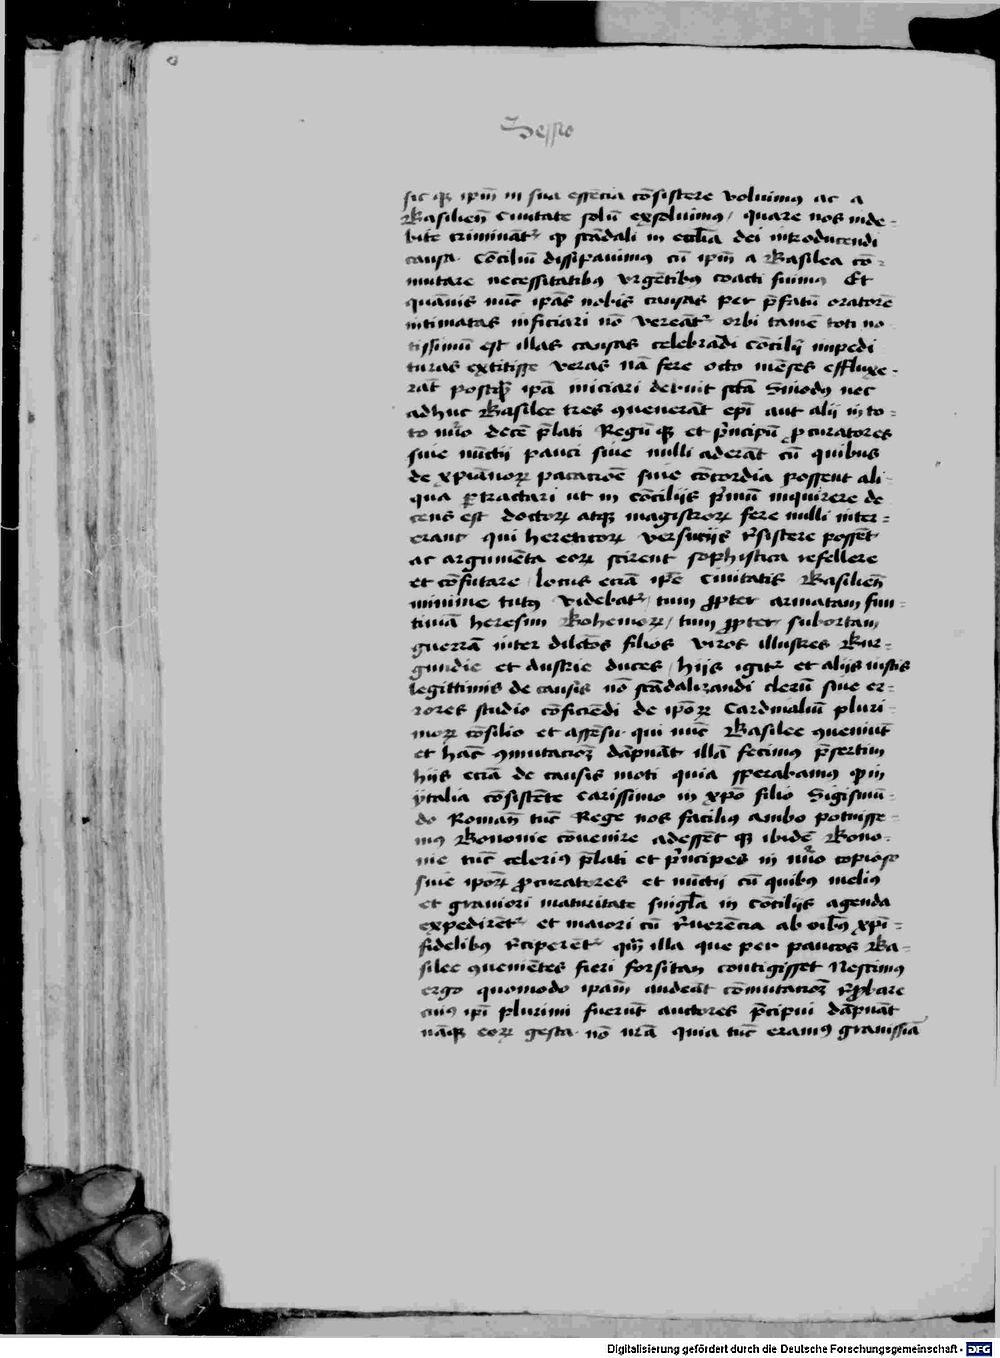 Sessio
sic qꝫ ipm̄ in sua essēcia cōsistere voluimꝰ ac a
Basilien̄ Ciuitate solū exsoluimꝰ / quare nos inde-
bite criminātr̄ ꝙ scādali in eccl̄ia dei introducendi
causa. Cōcilium dissipauimꝰ cū ipm̄ a Basilea cō-
mutare necessitatibꝰ vrgētibꝰ coacti fuimꝰ Et
quāuis nūc ipās nobis causas per p̄fatū oratorē
intimatas inficiari nō vereātr̄ orbi tamē toti no
tissimū est illas causas celebrādi cōcilij impedi
turas extitisse veras nā fere octo mēses effluxe-
rāt postq̄ꝫ ipā iniciari debuit sctā Sinodꝰ nec
adhuc Basilee tres ꝯuenerāt epī aut alij in to-
to nūo decē p̄lati Regū qꝫ et p̄ncipū ꝓcuratores
siue nūctij pauci siue nulli aderāt cū quibus
de xpianorꝝ pacacioē siue cōcordia possent ali-
qua ꝑtractari ut in cōcilijs p̄mū inquirere de
cens est doctorꝝ atqꝫ magistrorꝝ fere nulli inter-
erant qui hereticorꝝ versucijs r̄sistere possēt
ac argumēta eorꝝ scirent sophistica refellere
et cōfutare / locus eciā ipē Ciuitatis Basilien̄
minime tutꝰ videbatr̄ / tum ꝓpter armatam fini-
timā heresim Bohemorꝝ / tum ꝓpter subortam
guerrā inter dilc̄tos filios viros illustres Bur-
gundie et Austrie duces / hijs igitr̄ et alijs iustis
legittimis de causis nō scādalizandi clerū siue er-
rores studio cōficiēdi de ip̄orꝝ Cardinaliū pluri
morꝝ cōsilio et assēsu qui nūc Basilee ꝯueniūt
et hāc ꝯmutacioꝫ dāpnāt illā fecimꝰ p̄sertim
hijs eciā de causis moti quia sperabamꝰ ꝙ in
ytalia cōsistēte carissimo in xpō filio Sigismū-
do Roman̄ tūc Rege nos faciliꝰ ambo potuisse-
mꝰ Bononie cōuenire adessēt qꝫ ibidē Bono-
nie tūc celeriꝰ p̄lati et p̄ncipes in nūo copioso
siue ip̄orꝝ ꝓcuratores et nūctij cū quibꝰ meliꝰ
et grauiori maturitate singl̄a in Cōcilijs agenda
expedirētr̄ et maiori cū r̄uerēcia ab oībꝰ xpī-
fidelibꝰ r̄ciperētr̄ qm̄ illa que per paucos Ba-
silee ꝯueniētes fieri forsitan contigisset Nescimꝰ
ergo quomodo ipam̄ audeāt cōmutacioꝫ r̄ꝓbare
cuiꝰ ipī plurimi fuerūt auctores p̄cipui dāpnāt
nāqꝫ eorꝝ gesta. nō nr̄a quia tūc eramꝰ grauissīa
Digitalisierung gefördert durch die Deutsche Forschungsgemeinschaft - DFG